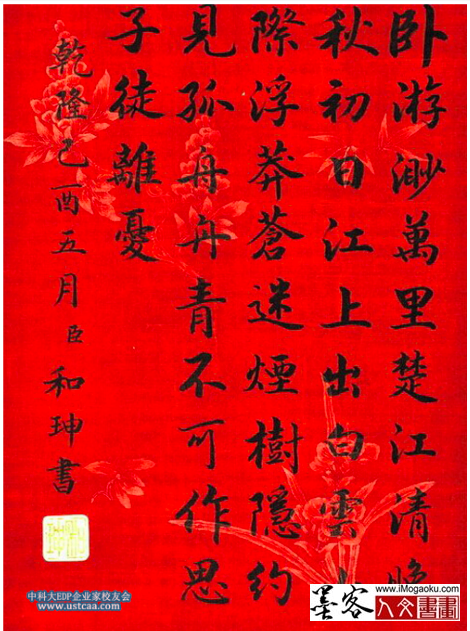 卧游渺萬里楚江清晚
秋初日江上出白雲
際浮莽蒼迷煙樹隱約
見孤舟丹青不可作思
子徒離憂
乾隆己酉五月臣和珅書
中科大EDP企业家校友会
www.ustcaa.com
www.iMogaoku.com
墨客
人文書畫